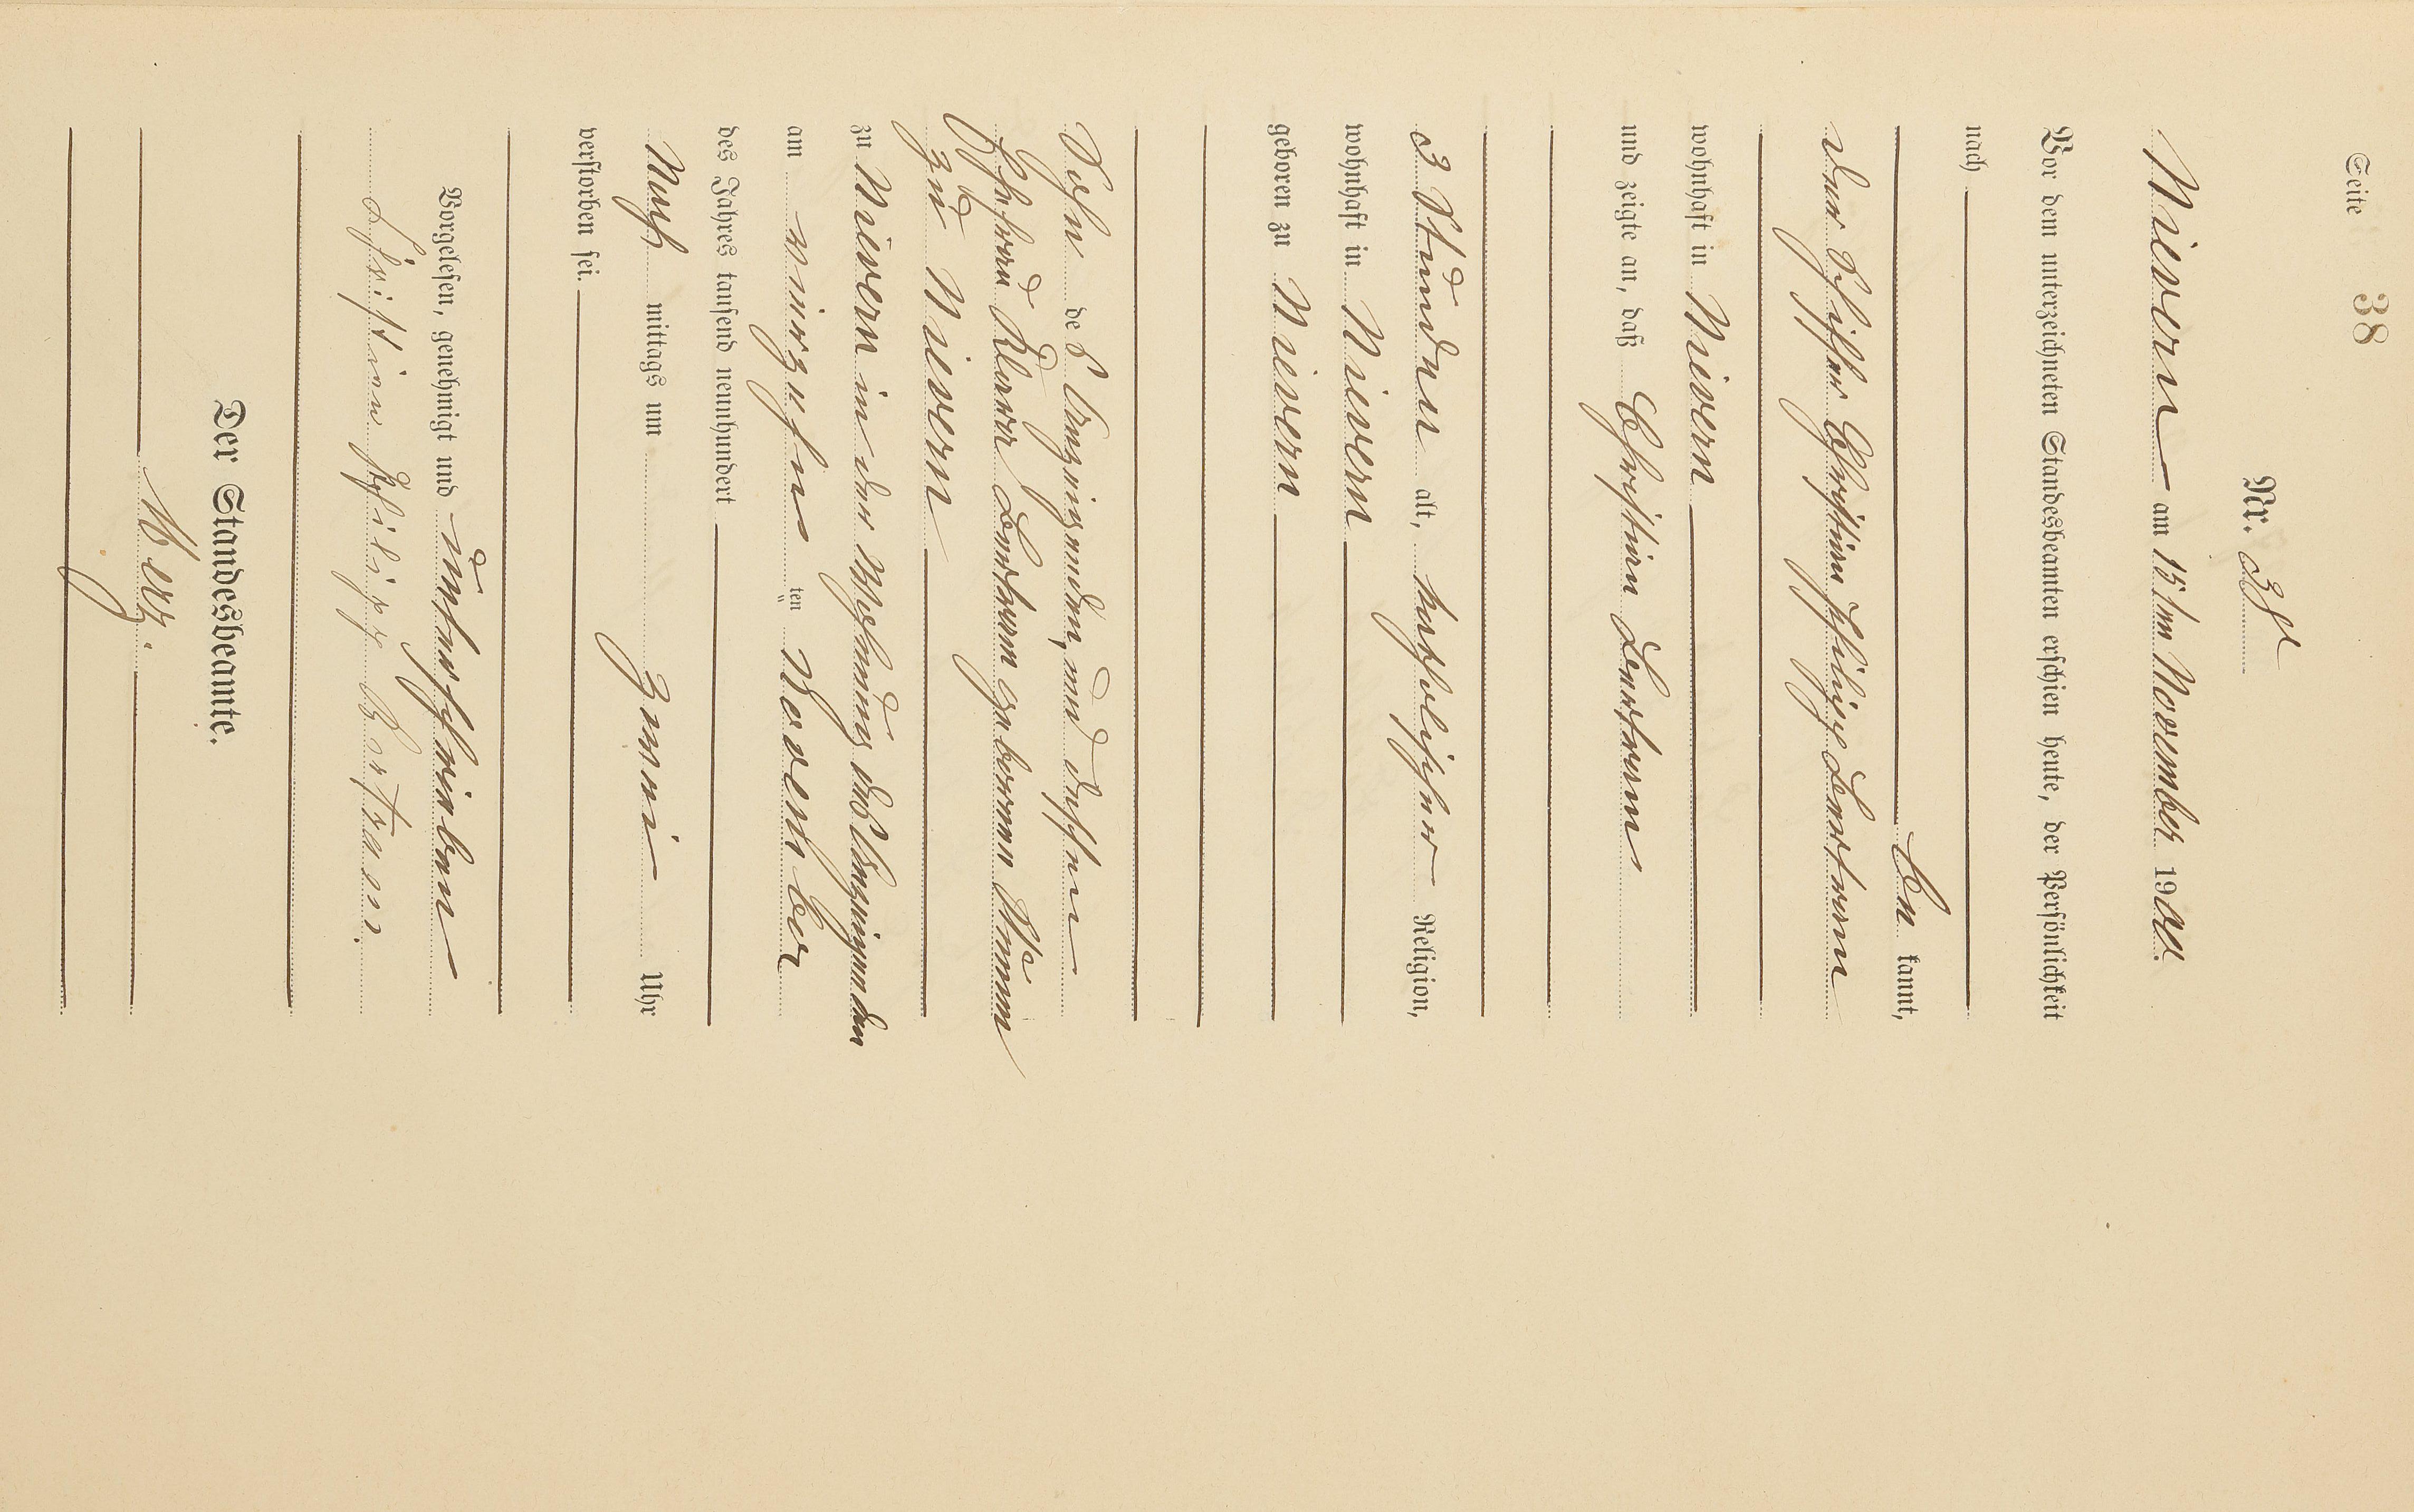 Seite 38
Nr. 38
Nievern am 15ten November 1900.
Vor dem unterzeichneten Standesbeamten erschien heute, der Persönlichkeit
nach
be kannt,
der Schiffer Christian Philipp Bertram
wohnhaft in Nievern
und zeigte an, daß Christian Bertram
3 Stunden alt, katholischer Religion,
wohnhaft in Nievern
geboren zu Nievern
Sohn des Anzeigenden, und dessen
Ehefrau Klara Bertram geborenen
zu Nievern
zu Nievern in der Wohnung des Anzeigenden
am vierzehn ten November
des Jahres tausend neunhundert
Nach mittags um zwei Uhr
verstorben sei.
Vorgelesen, genehmigt und unterschrieben
Christian Philipp Bertram.
Der Standesbeamte.
Merz.